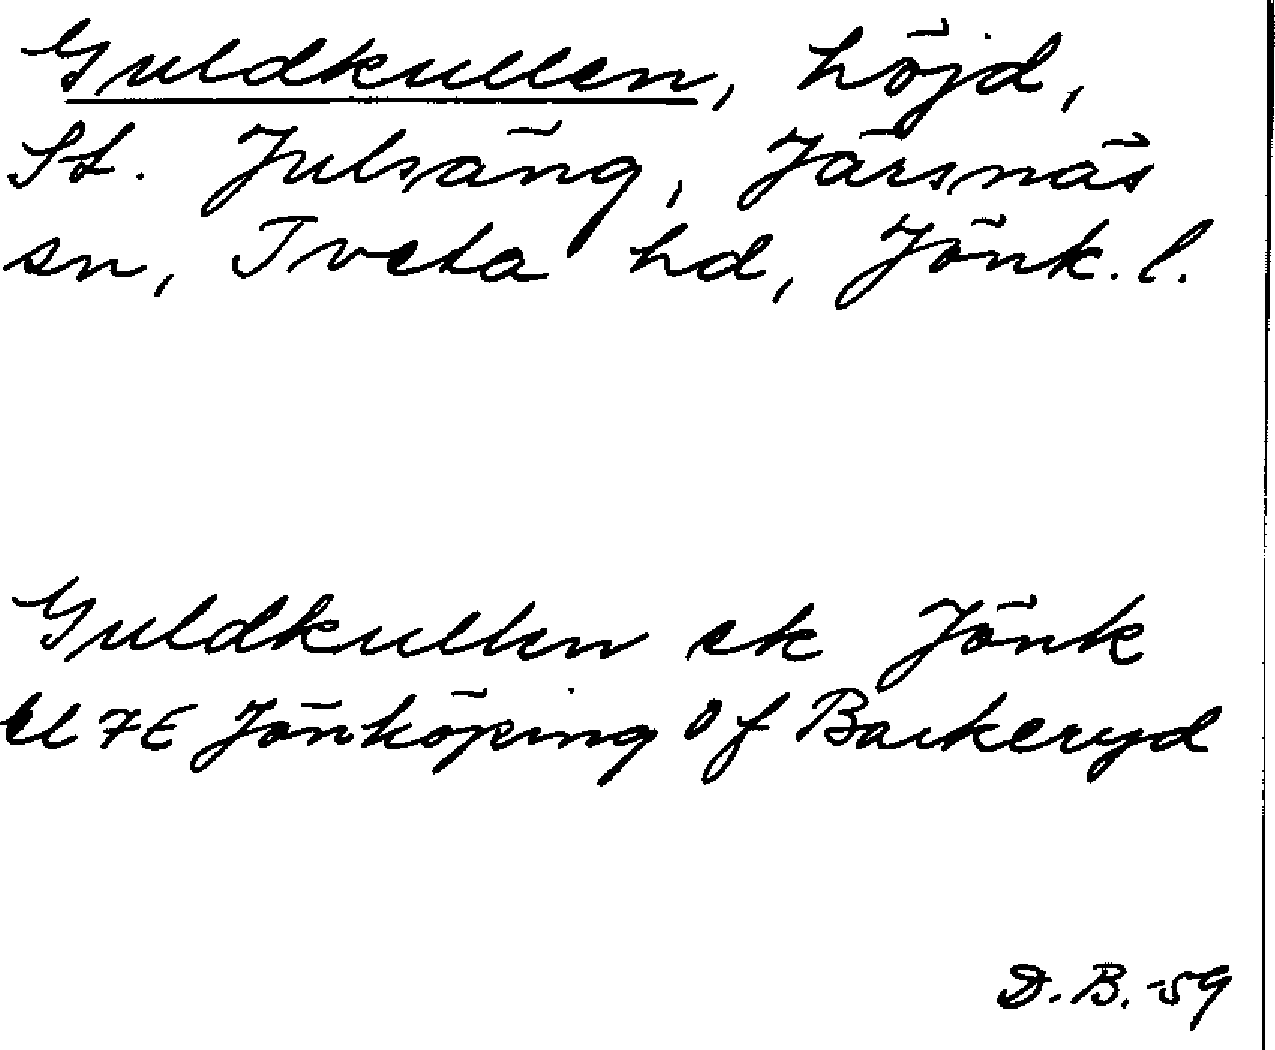 Guldkullen, höjd,
St. Julsäng, Järsnäs
sn, Tveta hd, Jönk. l.
Guldkullen ek Jönk
bl 7E Jönköping Of Barkeryd
D.B. -59